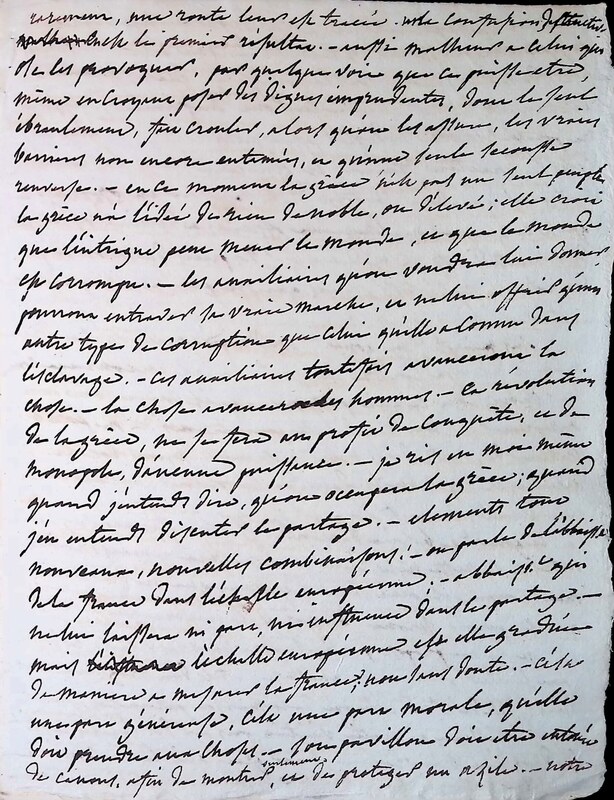 rarement, une route leur est tracée. une confusion destructive
en est le premier résultat. - aussi malheur a celui qui
ose les provoquer, par quelque voie que ce puisse etre,
même en croyant poser des digues imprudentes, dont le seul
ébranlement, fait crouler, alors qu'on les assure, les vraies
barrieres non encore entamées, et qu'une seule secousse
renverse. - en ce moment la grèce n'est pas un seul peuple
la grèce n'a l'idée de rien de noble, ou d'élevé; elle croit
que l'intrigue peut mener le monde, et que le monde
est corrompu. - les auxiliaires qu'on voudra lui donner
pourront entraver sa vraie marche, et ne lui offrir qu'un
autre type de corruption que celui qu'elle a connu dans
l'esclavage. - ces auxiliaires toutefois avanceront la
chose. - la chose avancera les hommes. - la révolution
de la grèce, ne se fera au profit de conquête, et de
monopole, d'aucune puissance. - je ris en moi même
quand j'entends dire, qu'on occupera la grèce; quand
j'en entends discuter le partage. - elements tous
nouveaux, nouvelles combinaisons! - on parle de l'abbaissement
de la france dans l'échelle européenne; - qui
ne lui laissera ni part, ni influence dans le partage. -
mais l'échelle européenne est elle graduée
de maniere a mesurer la france; non sans doute. - c'est
une part généreuse, c'est une part morale, qu'elle
doit prendre aux choses. - son pavillon doit etre entouré
de canons, afin de montrer seulement, et de proteger un azile. - notre